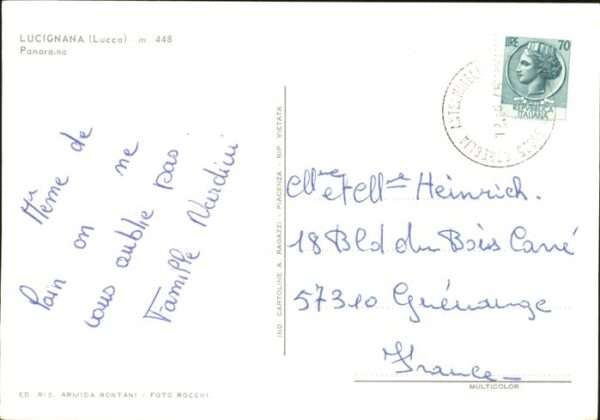 LUCIGNANA (Lucca) m 448
Panorama
Mr Meme de
loin on ne
vous oublie pas
Famille Nardini
IND. CARTOLINE A. RAGAZZI - PIACENZA - RIP. VIETATA
LIRE 70
REPUBBLICA
ITALIANA
Mme et Mlle Heinrich.
18 Bld du Bois Carré
57310 Guénange
France
MULTICOLOR
ED. RIS. ARMIDA MONTANI - FOTO ROCCHI